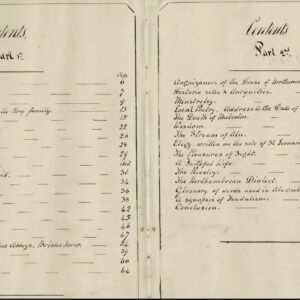 Contents
Part 1st
Page
6
7
9
the Percy family.
13
19
22
23
24
26
ibid
30
34
35
38
42
45
47
Abbeys, Bondgate Tower.
54
59
60
64
Contents
Part 2nd
Cognizances of the House of Northum
Historic notes & Antiquities.
Minstrelsy.
Local Poetry. Address to the Duke of
The Death of Malcolm.
Wisdom.
The Stream of Aln.
Elegy written on the site of St Leonar
The Pleasures of Sight.
A Faithful Wife.
The Revelry.
The Northumbrian Dialect.
Glossary of words used in Alnwick
A synopsis of Feudalism.
Conclusion.